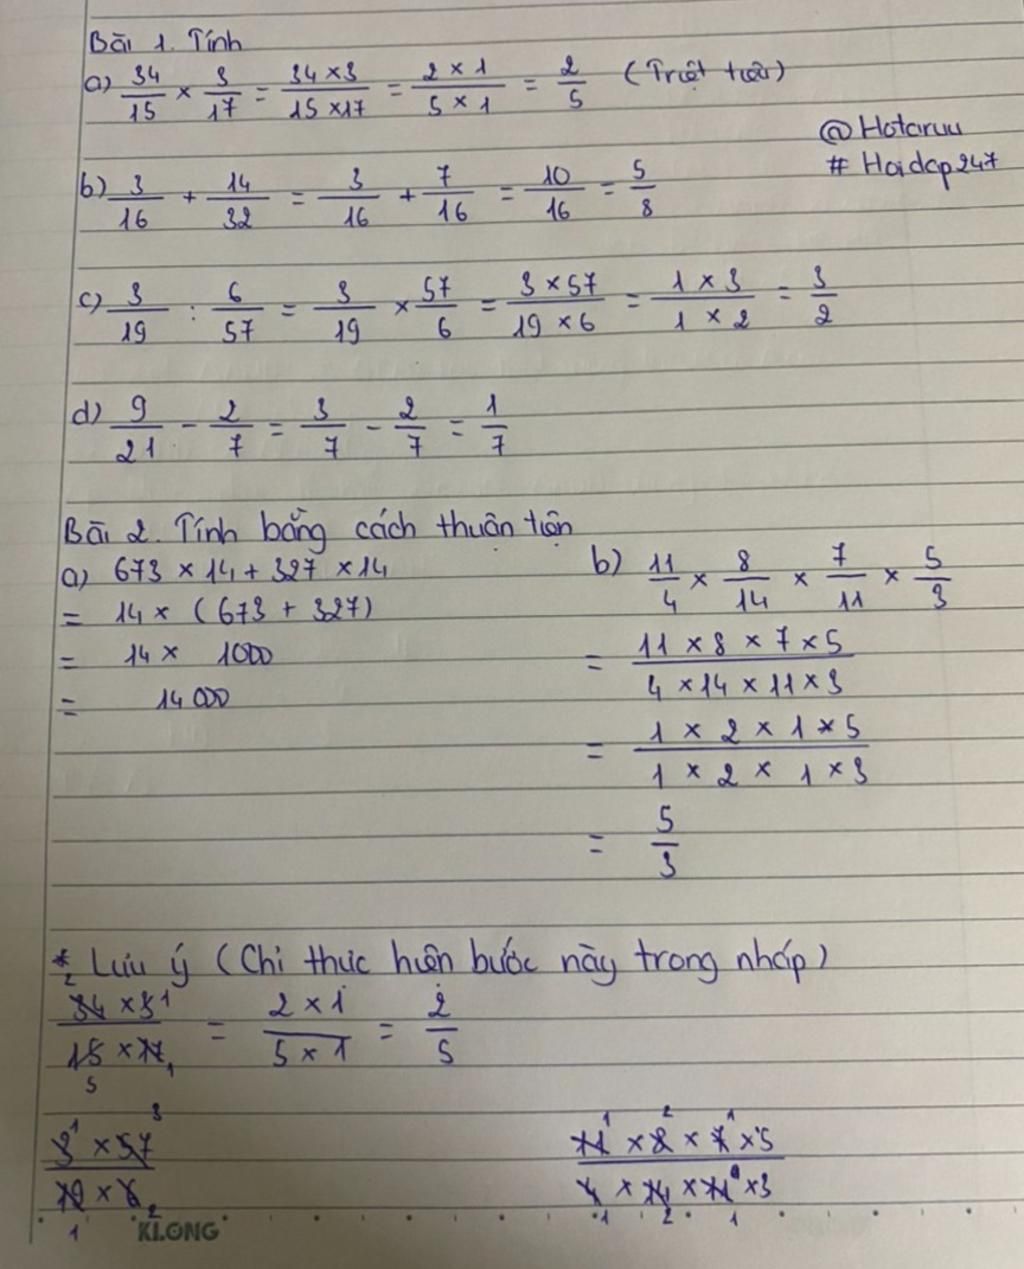 Bài 1. Tính
a) 34/15 × 3/17 = 34 × 3/15 × 17 = 2 × 1/5 × 1 = 2/5 (Triệt tiêu)
@Hotaruu
# Hoidap247
b) 3/16 + 14/32 = 3/16 + 7/16 = 10/16 = 5/8
c) 3/19 : 6/57 = 3/19 × 57/6 = 3 × 57/19 × 6 = 1 × 3/1 × 2 = 3/2
d) 9/21 - 2/7 = 3/7 - 2/7 = 1/7
Bài 2. Tính bằng cách thuận tiện
a) 673 × 14 + 327 × 14
= 14 × (673 + 327)
= 14 × 1000
= 14 000
b) 11/4 × 8/14 × 7/11 × 5/3
= 11 × 8 × 7 × 5/4 × 14 × 11 × 3
= 1 × 2 × 1 × 5/1 × 2 × 1 × 3
= 5/3
* Lưu ý (Chỉ thực hiện bước này trong nháp)
2 1
34 × 3/15 × 17 = 2 × 1/5 × 1 = 2/5
5 1
1 3
3 × 57/19 × 6
1 2
1 2 1
11 × 8 × 7 × 5/4 × 14 × 11 × 3
1 2 1
KLONG